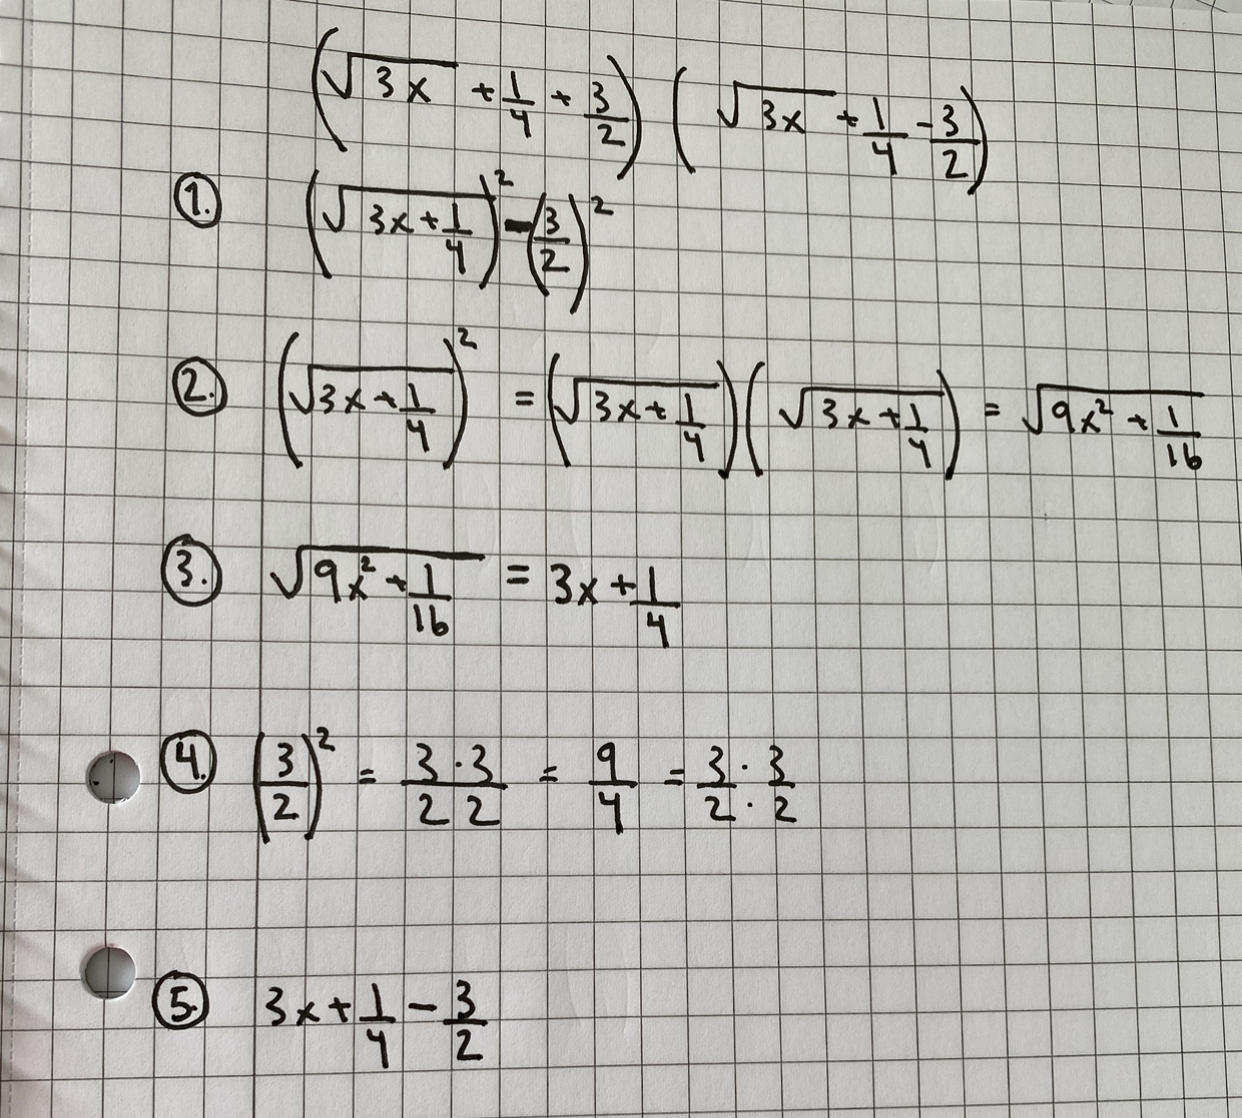 (√(3x) + 1/4 + 3/2) (√(3x) + 1/4 - 3/2)
1. (√(3x + 1/4))² - (3/2)²
2. (√(3x + 1/4))² = (√(3x + 1/4)) (√(3x + 1/4)) = √(9x² + 1/16)
3. √(9x² + 1/16) = 3x + 1/4
4. (3/2)² = (3 · 3)/(2 2) = 9/4 = 3/2 · 3/2
5. 3x + 1/4 - 3/2